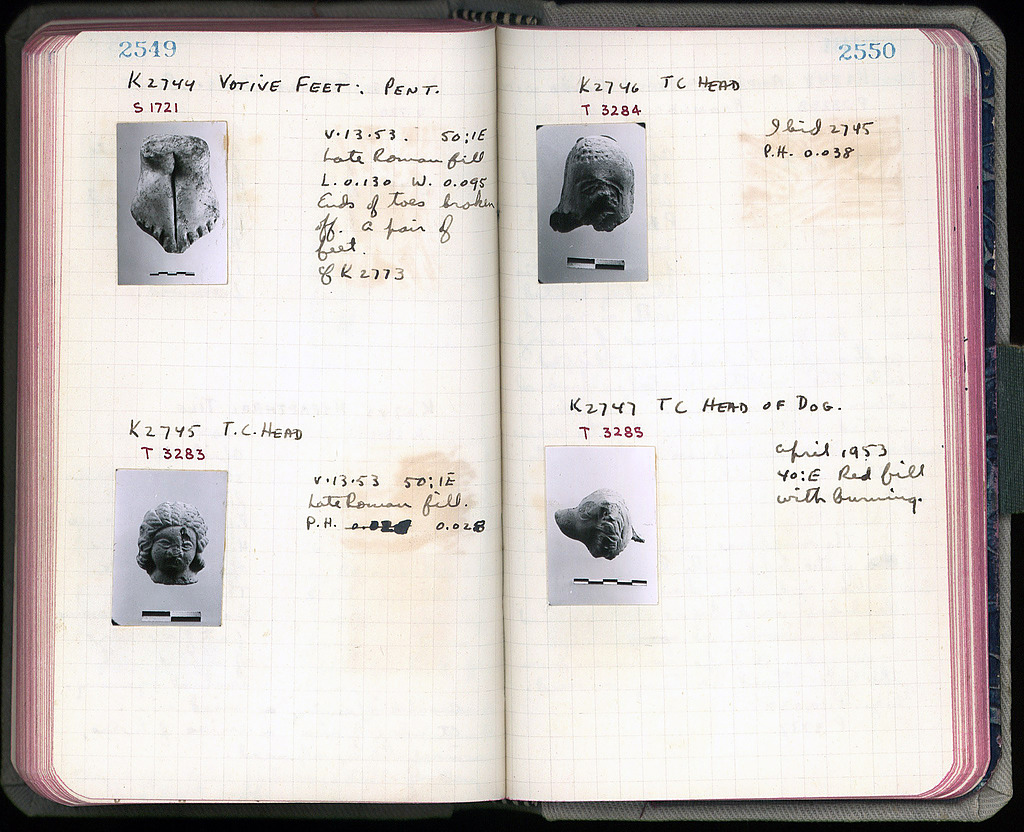 2549
K2744 VOTIVE FEET: PENT.
S 1721
V.13.53. 50;1E
Late Roman fill
L. 0.130 W. 0.095
Ends of toes broken
off. a pair of
feet.
cf K 2773
K2745 T.C. HEAD
T 3283
V.13.53 50;1E
Late Roman fill.
P.H. 0.028
2550
K2746 TC HEAD
T 3284
Ibid 2745
P.H. 0.038
K2747 TC HEAD OF DOG.
T 3285
April 1953
40:E Red fill
with burning.